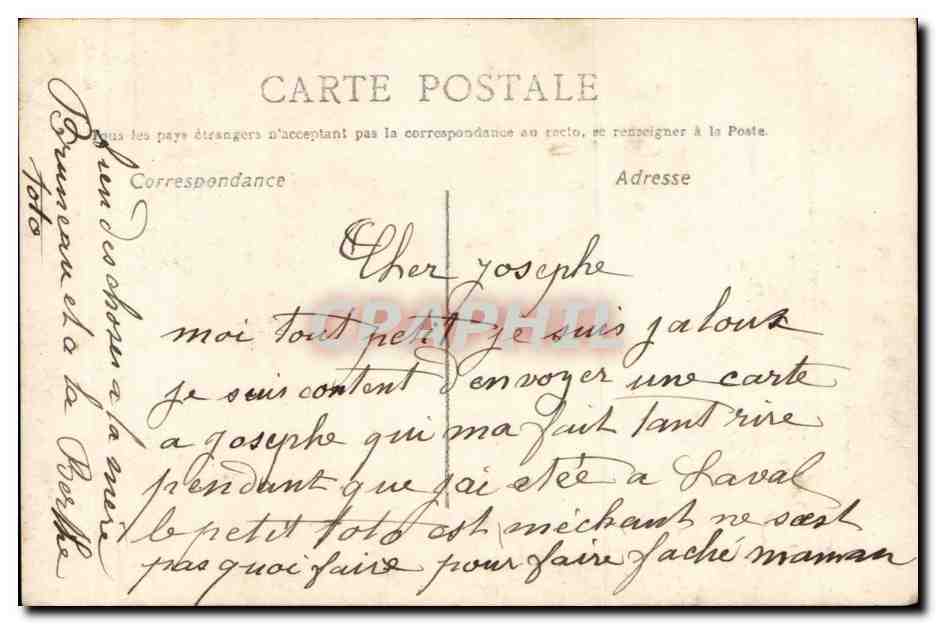 CARTE POSTALE
Tous les pays étrangers n'acceptant pas la correspondance au recto, se renseigner à la Poste.
Correspondance
Adresse
Cher Josephe
moi tout petit je suis jaloux
je suis content d'envoyer une carte
a Josephe qui ma fait tant rire
pendant que j'ai etée a Laval
le petit toto est méchant ne sast
pas quoi faire pour faire faché maman
bien des choses a la mère
Bruneau et a la Berthe
toto
CPAPHIL